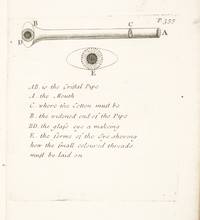 P. 355
B C A
D
E
AB. is the Cristal Pipe
A. the Mouth
C. where the Cotton must be
B. the widened end of the Pipe
BD. the glass eye a makeing
E. the forme of the Eye shewing
how the Small coloured threads
must be laid on